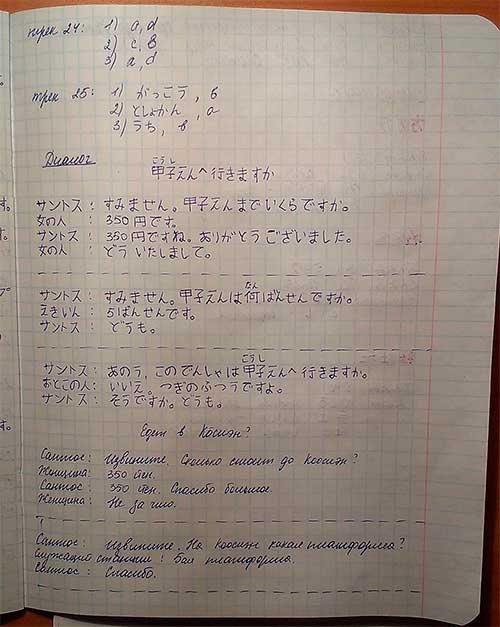 трек 24: 1) a, d
2) c, b
3) a, d
трек 25: 1) がっこう, б
2) としょかん, a
3) うち, в
Диалог
こうし
甲子えんへ行きますか
サントス: すみません。甲子えんまでいくらですか。
女の人: 350円です。
サントス: 350円ですね。ありがとうございました。
女の人: どういたしまして。
なん
サントス: すみません。甲子えんは何ばんせんですか。
えきいん: 5ばんせんです。
サントス: どうも。
こうし
サントス: あのう、このでんしゃは甲子えんへ行きますか。
おとこの人: いいえ。つぎのふつうですよ。
サントス: そうですか。どうも。
Едет в Косиэн?
Сантос: Извините. Сколько стоит до Коосиэн?
Женщина: 350 йен.
Сантос: 350 йен. Спасибо большое.
Женщина: Не за что.
Сантос: Извините. На Коосиэн какая платформа?
Служащий станции: 5ая платформа.
Сантос: Спасибо.